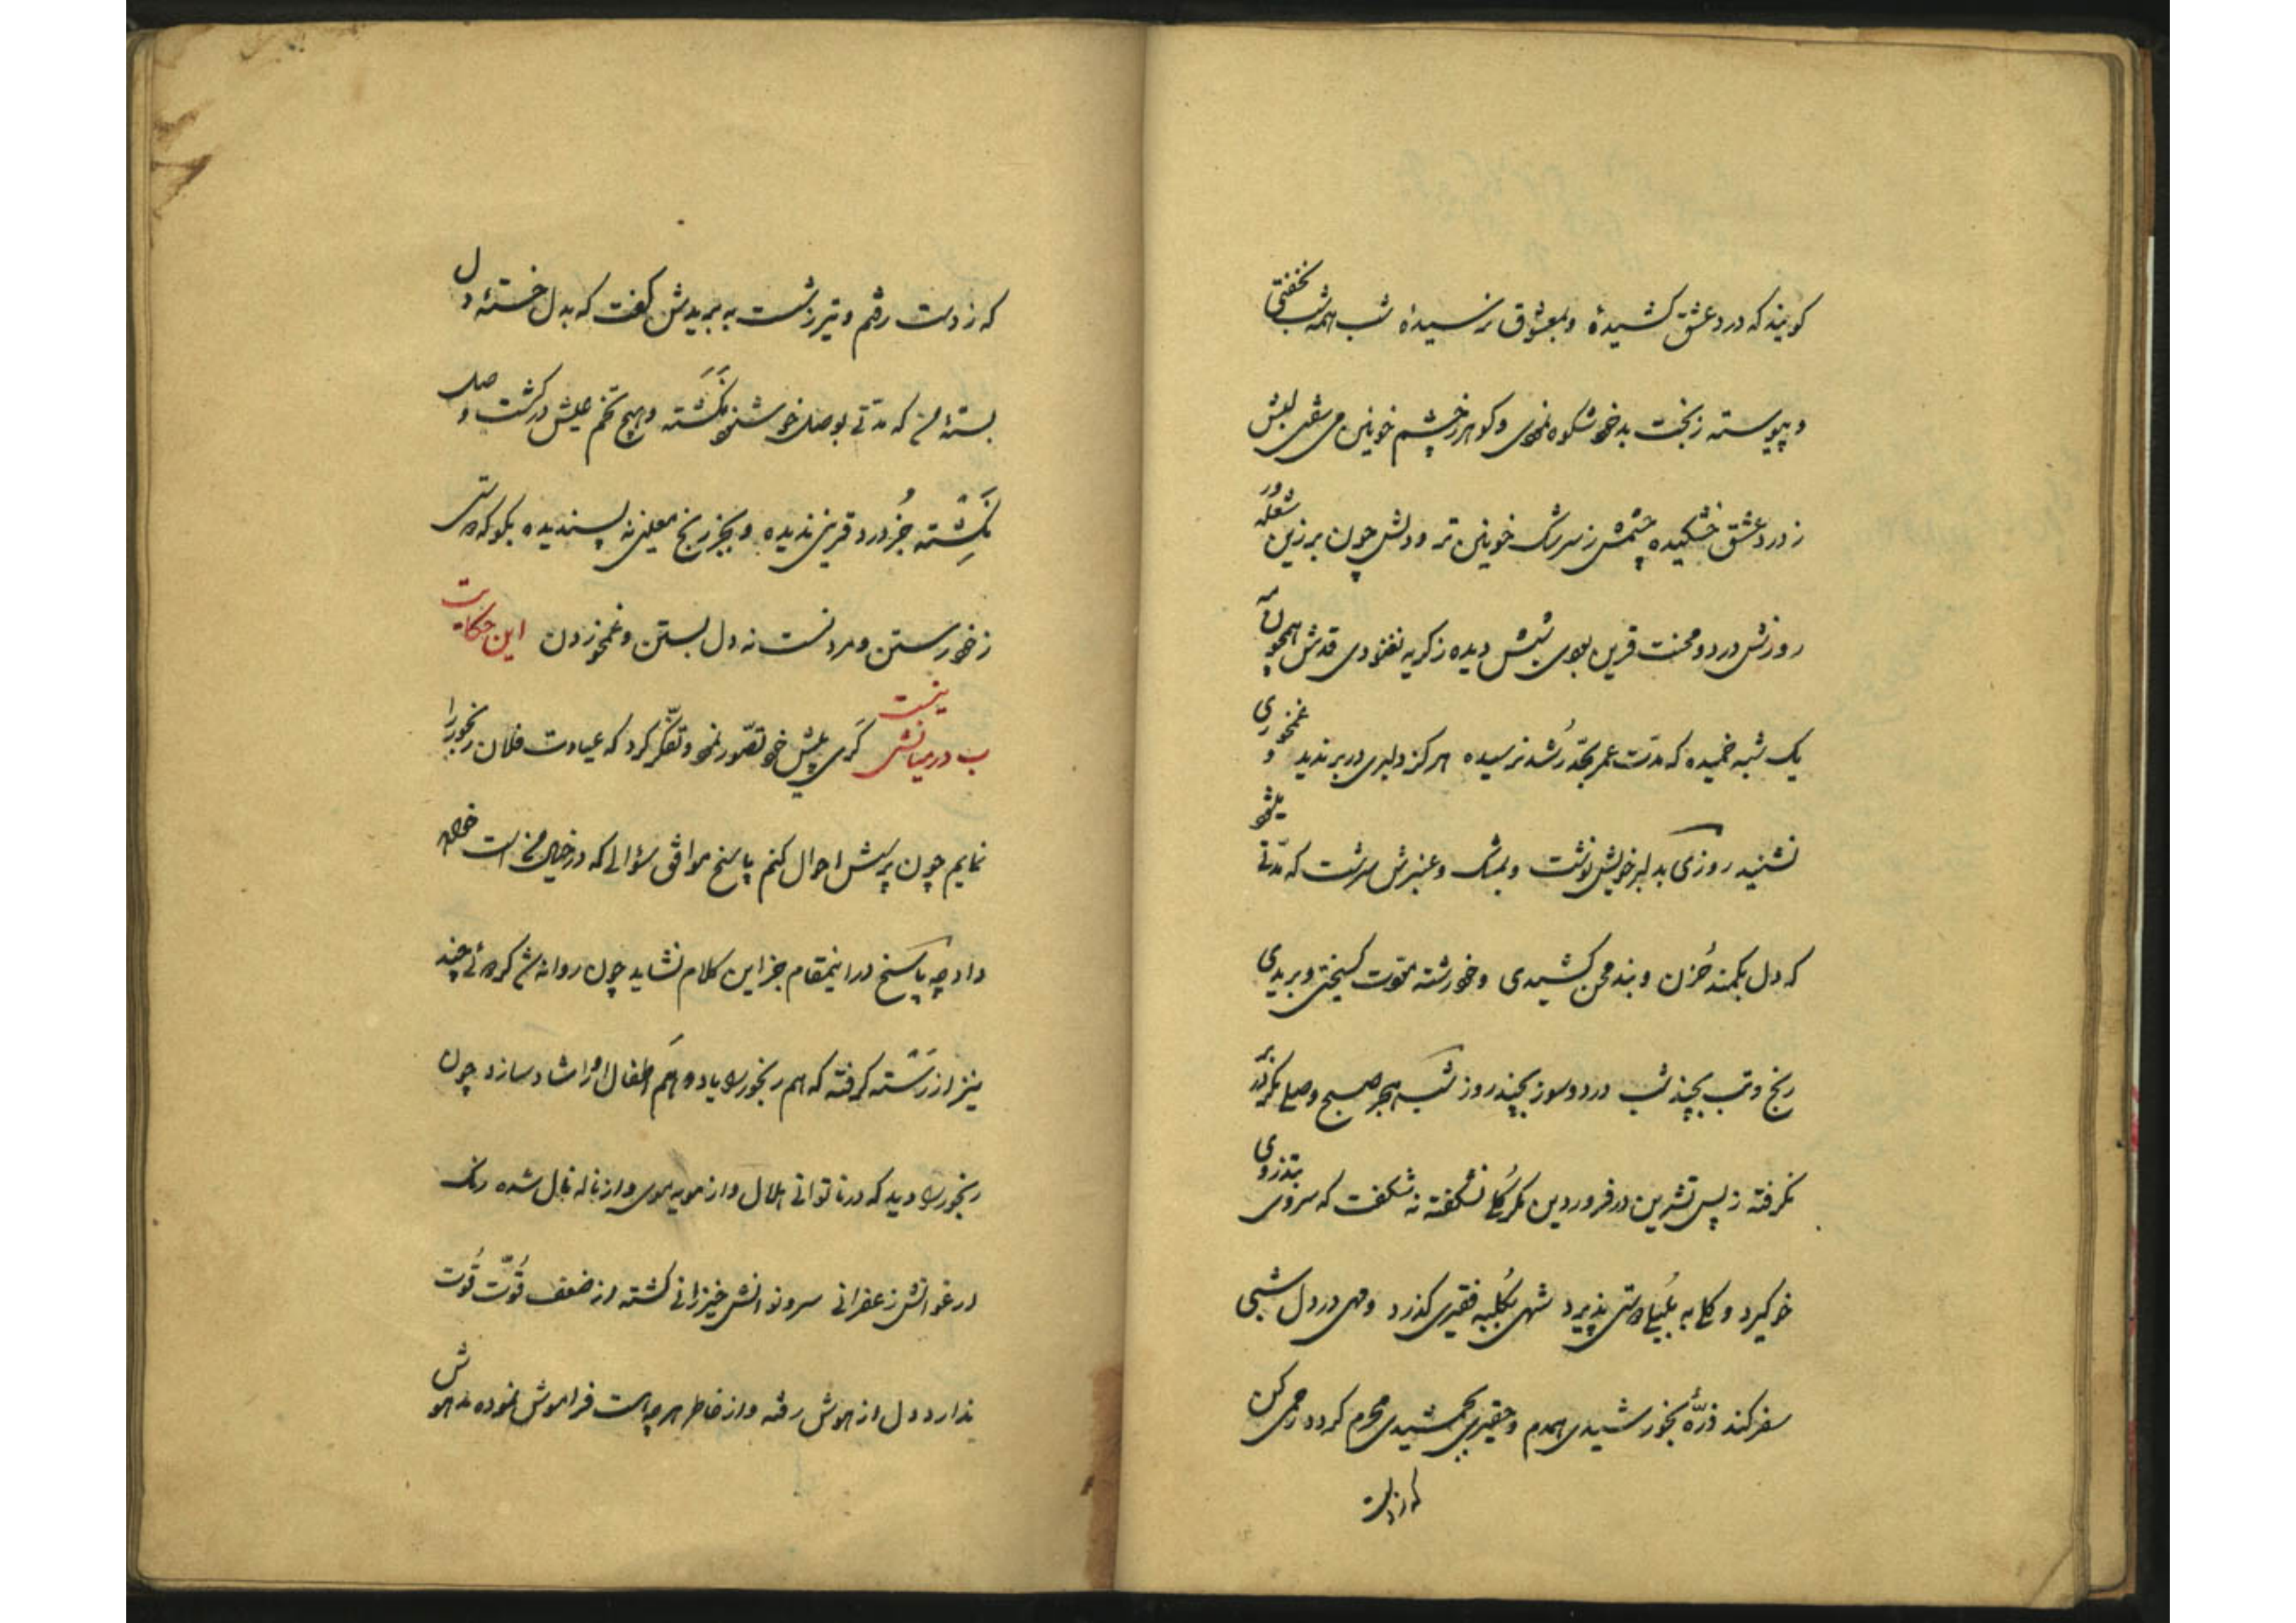 کویند که درد عشق کشیدۀ و بمعشوق نرسیدۀ شب همه شب نخفتی
و پیوسته ز بخت بد خود شکوه نمودی و کوهر ز چشم خونین می سفتی لبش
ز درد عشق خشکیده چشمش ز سرشک خونین تر و دلش چون برزین شعله ور
روزش درد و محنت قرین بودی شبش دیده ز کریه نغنودی قدش همچون مه
یک شبه خمیده که مدّت عمر بحدّ رُشد نرسیده هرکز دلبری در بر ندید و غمخوری
نشنید روزی بدلبر خویش نوشت و بمشک و عنبرش سرشت که مدّتی
که دل بکمند حُزن و بند محن کشیدی و خود رشته مودّت کسیختی و بریدی
رنج و تب بچند شب درد و سوز بچند روز شب هجر صبح وصلی مکر در بر
نکرفته ز پس تشرین در فروردین مکر کُلی نشکفته نه شکفت که سروی بتذروی
خو کیرد و کلی به بُلبلی دوستی پذیرد شهی بکُلبه فقیری کذرد و مهی در دل شبی
سفر کند ذرّۀ بخورشیدی همدم و حقیری بجمشیدی محرم کردد رحمی کن
که از دست
که ز دست رفتم و تیر ز شست به بریدش کفت که بدل خستۀ دل
بستۀ من که مدّتی بوصل خود خوشنود نَکَشته و هیچ تخم عیش در کشت وصل
نَکِشته جُز درد قرینی ندیده و بجز رنج معینی نه پسندیده بکو که دوستی
ز خود رستن و مردنست نه دل بستن و غمخوردن این حکایت
ب در میانش نیست کَری پیش خود تصوّر نمود و تفکّر کرد که عیادت فلان رنجور را
نمایم چون پرسش احوال کنم پاسخ موافق سؤالی که در خیال منست خواهد
داد چه پاسخ در اینمقام جز این کلام نشاید چون روانه شد کردۀ چند
نیز از رَسته کرفته که هم رنجور را یاد و هَم اطفال او را شاد سازد چون
رنجور را دید که در ناتوانی هلال و از مویه موی و از ناله نال شده رنک
ارغوانش زعفرانی سرو نوانش خیزرانی کشته از ضعف قُوّت قُوت
ندارد دل از هوش رفته و از خاطر هرچه هست فراموش نموده مدهوش